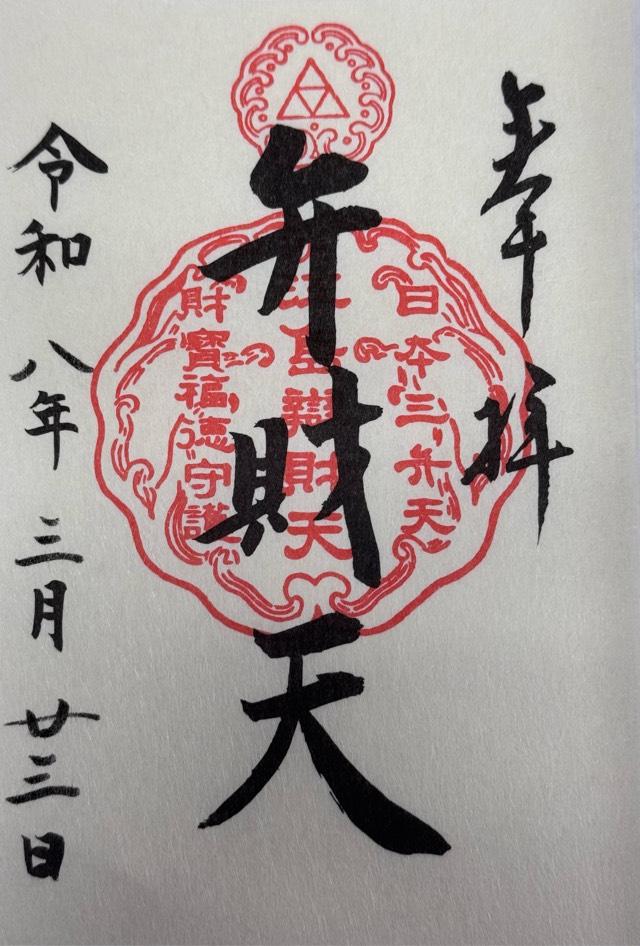 奉拝
日本三弁天
江島辯財天
財寳福徳守護
弁財天
令和八年三月廿三日